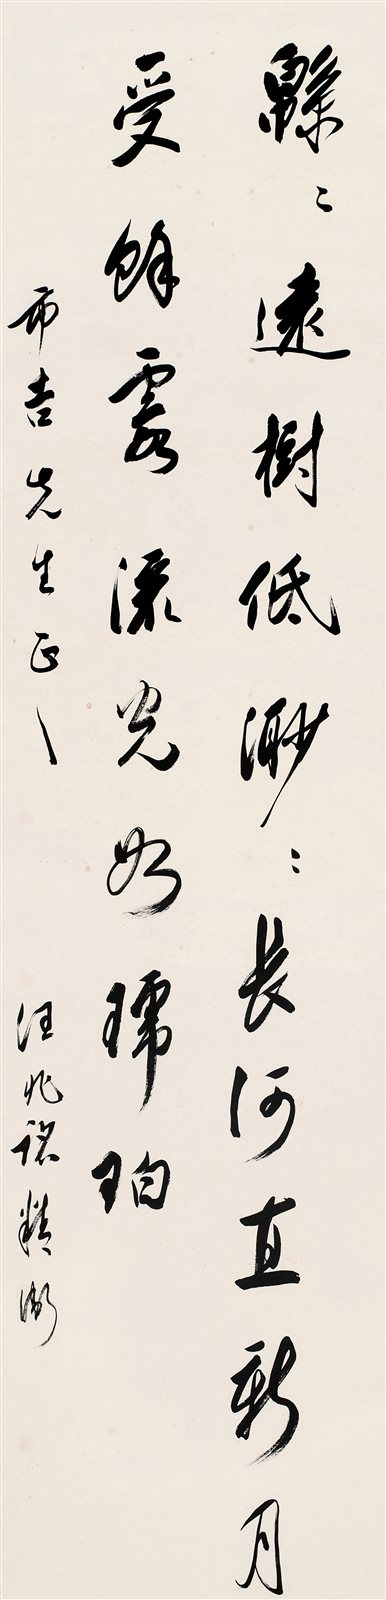 緜〻遠樹低渺〻長河直新月
受餘霞流光如琥珀
吉先生正之
汪兆銘精衛